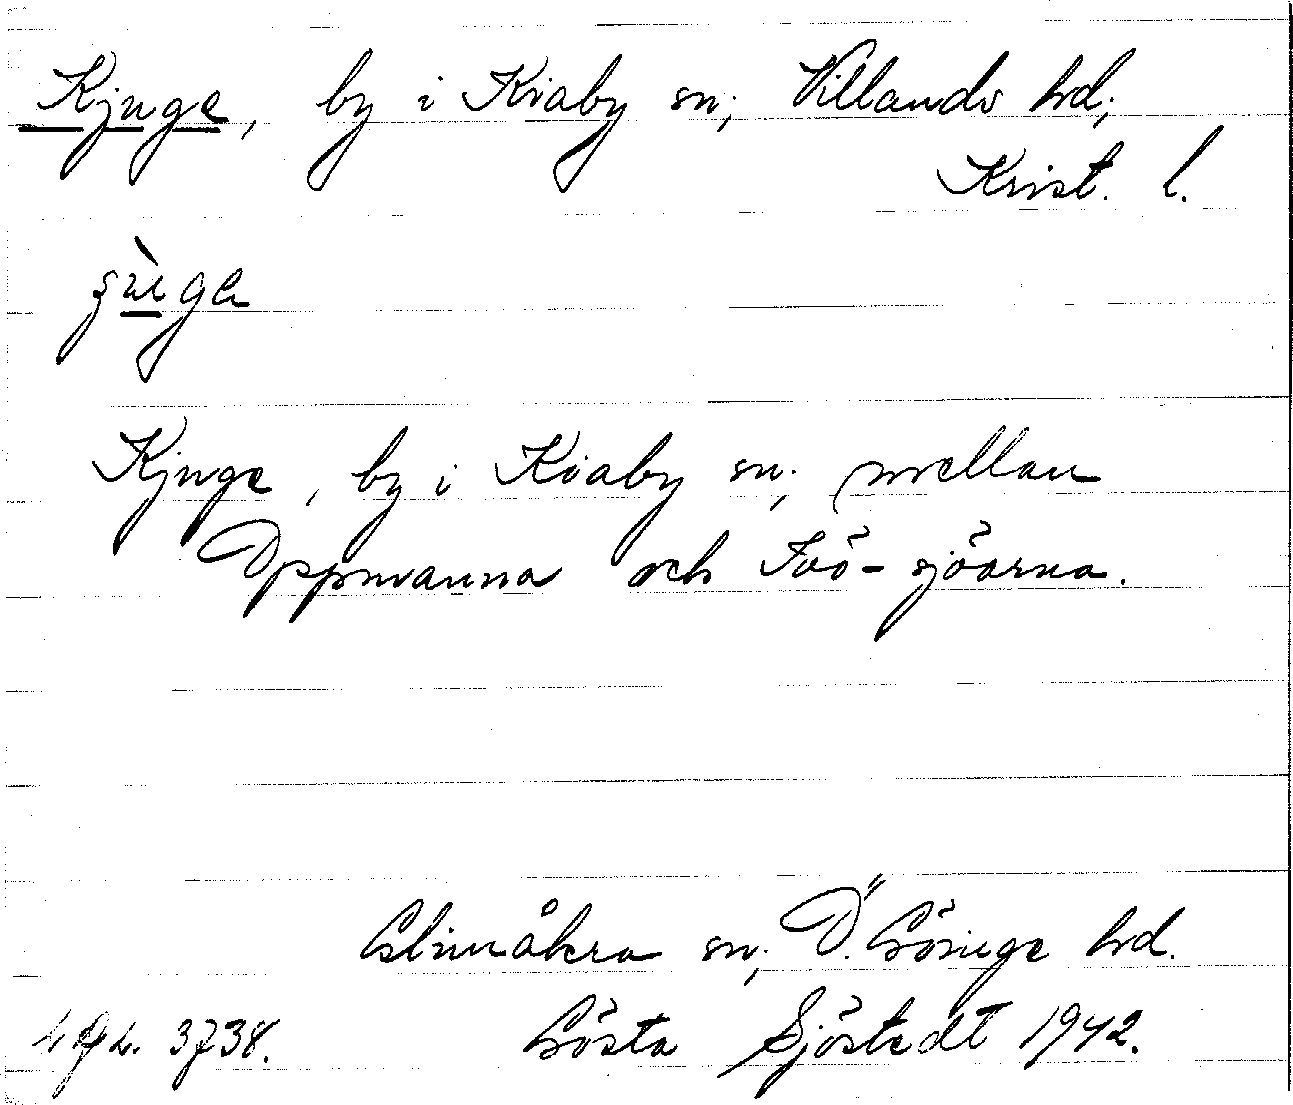 Kjuge, by i Kiaby sn; Villands hd;
Krist. l.
Kjuge, by i Kiaby sn; mellan
Oppmanna och Ivö-sjöarna.
Glimåkra sn; Ö. Göinge hd.
3738. Gösta Sjöstedt 1942.